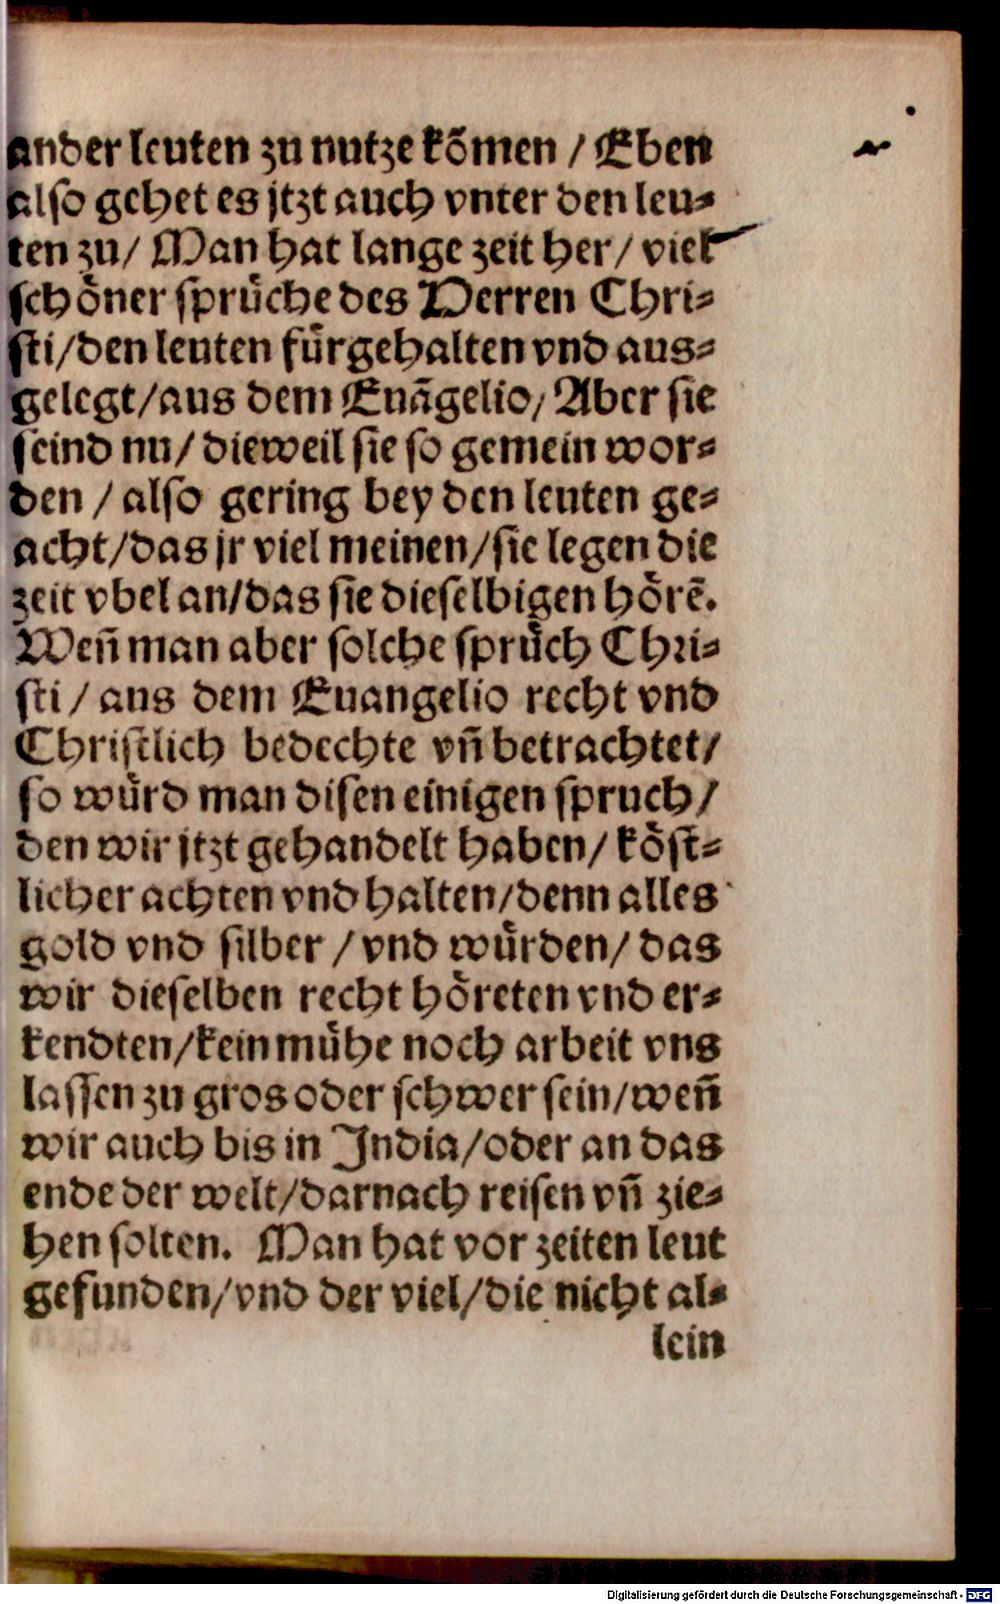 ander leuten zu nutze kõmen / Eben
also gehet es jtzt auch vnter den leu⸗
ten zu / Man hat lange zeit her / viel
schöner sprüche des Herren Chri⸗
sti / den leuten fürgehalten vnd aus⸗
gelegt / aus dem Euãgelio / Aber sie
seind nu / dieweil sie so gemein wor⸗
den / also gering bey den leuten ge⸗
acht / das jr viel meinen / sie legen die
zeit vbel an / das sie dieselbigen hörẽ.
Weñ man aber solche sprüch Chri⸗
sti / aus dem Euangelio recht vnd
Christlich bedechte vñ betrachtet /
so würd man disen einigen spruch /
den wir jtzt gehandelt haben / köst⸗
licher achten vnd halten / denn alles
gold vnd silber / vnd würden / das
wir dieselben recht höreten vnd er⸗
kendten / kein mühe noch arbeit vns
lassen zu gros oder schwer sein / weñ
wir auch bis in India / oder an das
ende der welt / darnach reisen vñ zie⸗
hen solten. Man hat vor zeiten leut
gefunden / vnd der viel / die nicht al⸗
lein
Digitalisierung gefördert durch die Deutsche Forschungsgemeinschaft - DFG